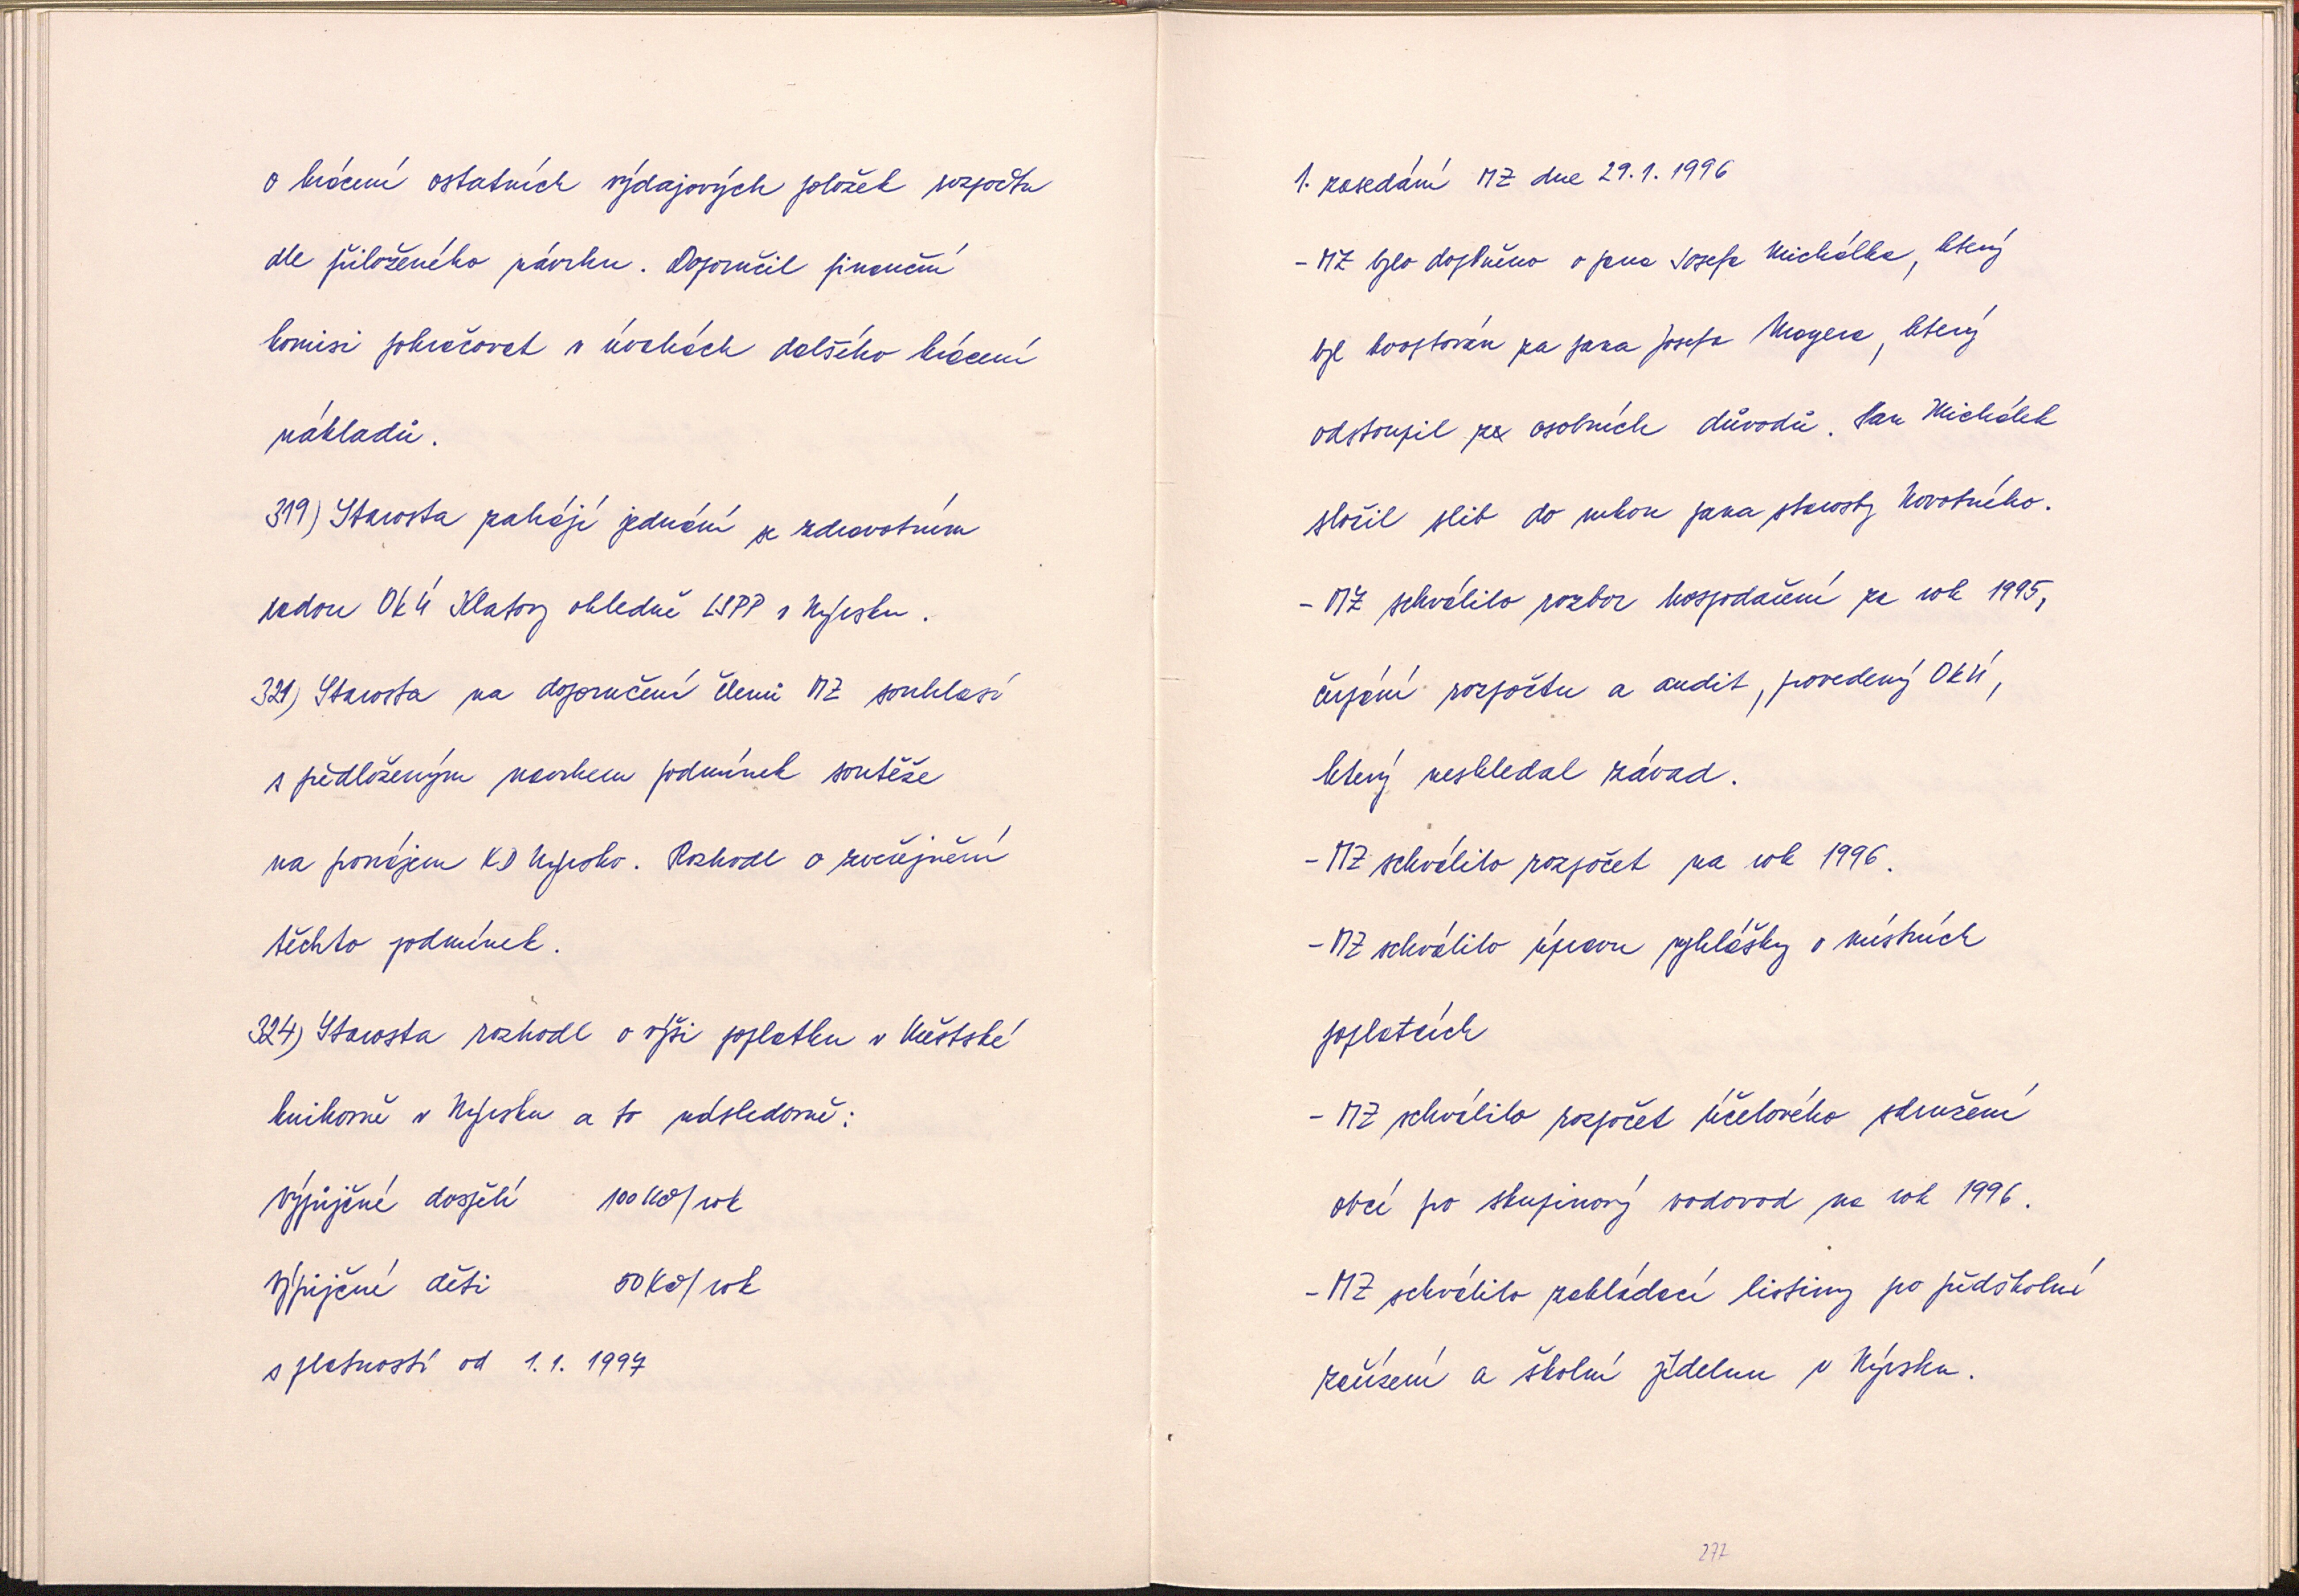 o krácení ostatních výdajových položek rozpočtu
dle přiloženého návrhu. Doporučil finanční
komisi pokračovat v úvahách dalšího krácení
nákladů.
319) Starosta zahájí jednání se zdravotním
radou OkÚ Klatovy ohledně LSPP v Nýrsku.
321) Starosta na doporučení členů MZ souhlasí
s předloženým návrhem podmínek soutěže
na pronájem KD Nýrsko. Rozhodl o zveřejnění
těchto podmínek.
324) Starosta rozhodl o výši poplatku v Městské
knihovně v Nýrsku a to následovně:
Výpůjčné dospělí 100 Kč/rok
Výpůjčné děti 50 Kč/rok
s platností od 1.1. 1997
1. zasedání MZ dne 29.1.1996
- MZ bylo doplněno o pana Josefa Michálka, který
byl kooptován za pana Josefa Mayera, který
odstoupil z osobních důvodů. Pan Michálek
složil slib do rukou pana starosty Novotného.
- MZ schválilo rozbor hospodaření za rok 1995,
čerpání rozpočtu a audit, provedený OkÚ,
který neshledal závad.
- MZ schválilo rozpočet na rok 1996.
- MZ schválilo úpravu vyhlášky o místních
poplatcích
- MZ schválilo rozpočet účelového sdružení
obcí pro skupinový vodovod na rok 1996.
- MZ schválilo zakládací listiny pro předškolní
zařízení a školní jídelnu v Nýrsku.
277